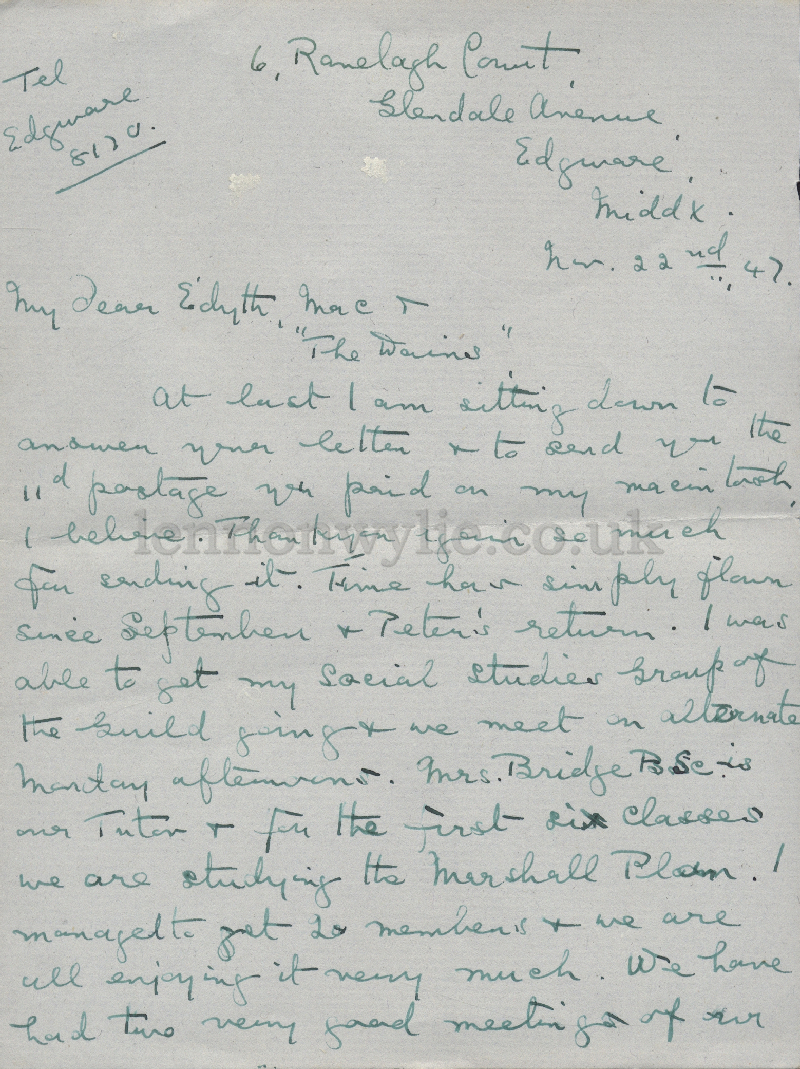 Tel
Edgware
8170.
6, Ranelagh Court,
Glendale Avenue,
Edgware,
Middx.
Nov. 22nd, 47.
My Dear Edyth, Mac +
"The Wains",
At last I am sitting down to
answer your letter + to send you the
11d postage you paid on my macintosh,
I believe. Thankyou again so much
for sending it. Time has simply flown
since September + Peter's return. I was
able to get my Social Studies Group of
the Guild going + we meet on alternate
Monday afternoons. Mrs. Bridge BSc. is
our Tutor + for the first six classes
we are studying the Marshall Plan. I
managed to get 20 members + we are
all enjoying it very much. We have
had two very good meetings of our
lennonwylie.co.uk